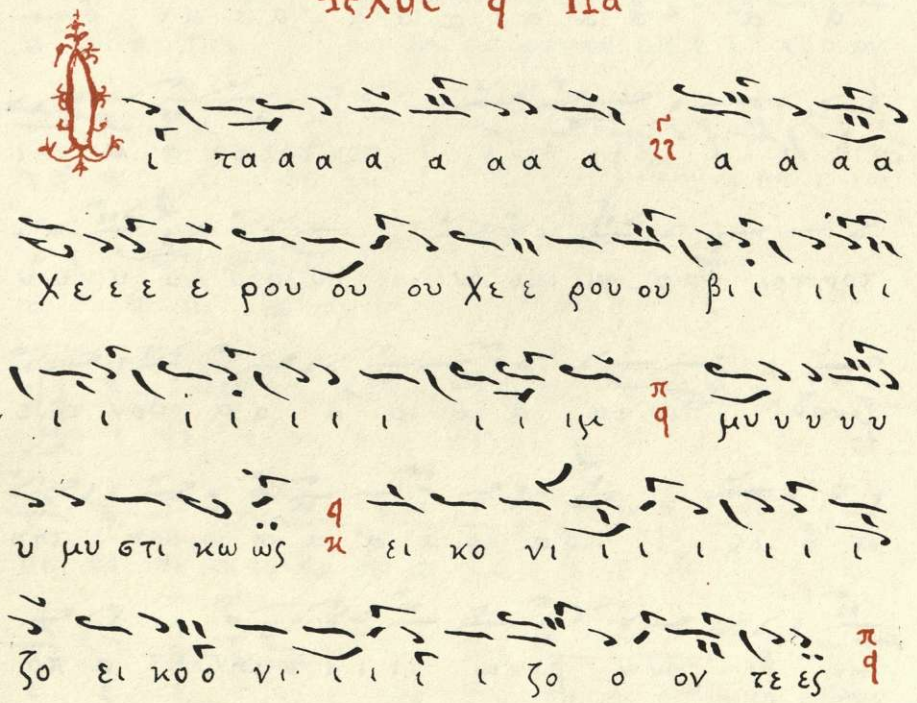 Ἦχος q Πα
Οι τα α α α α α α α α α α α
Χε ε ε ε ε ρου ου ου Χε ε ρου ου βι ι ι ι ι
ι ι ι ι ι ι ι ι ι ιμ π q μυ υ υ υ υ
υ μυ στι κω ως q κ ει κο νι ι ι ι ι ι ι
ζο ει κο ο νι ι ι ι ι ζο ο ον τε ες π q